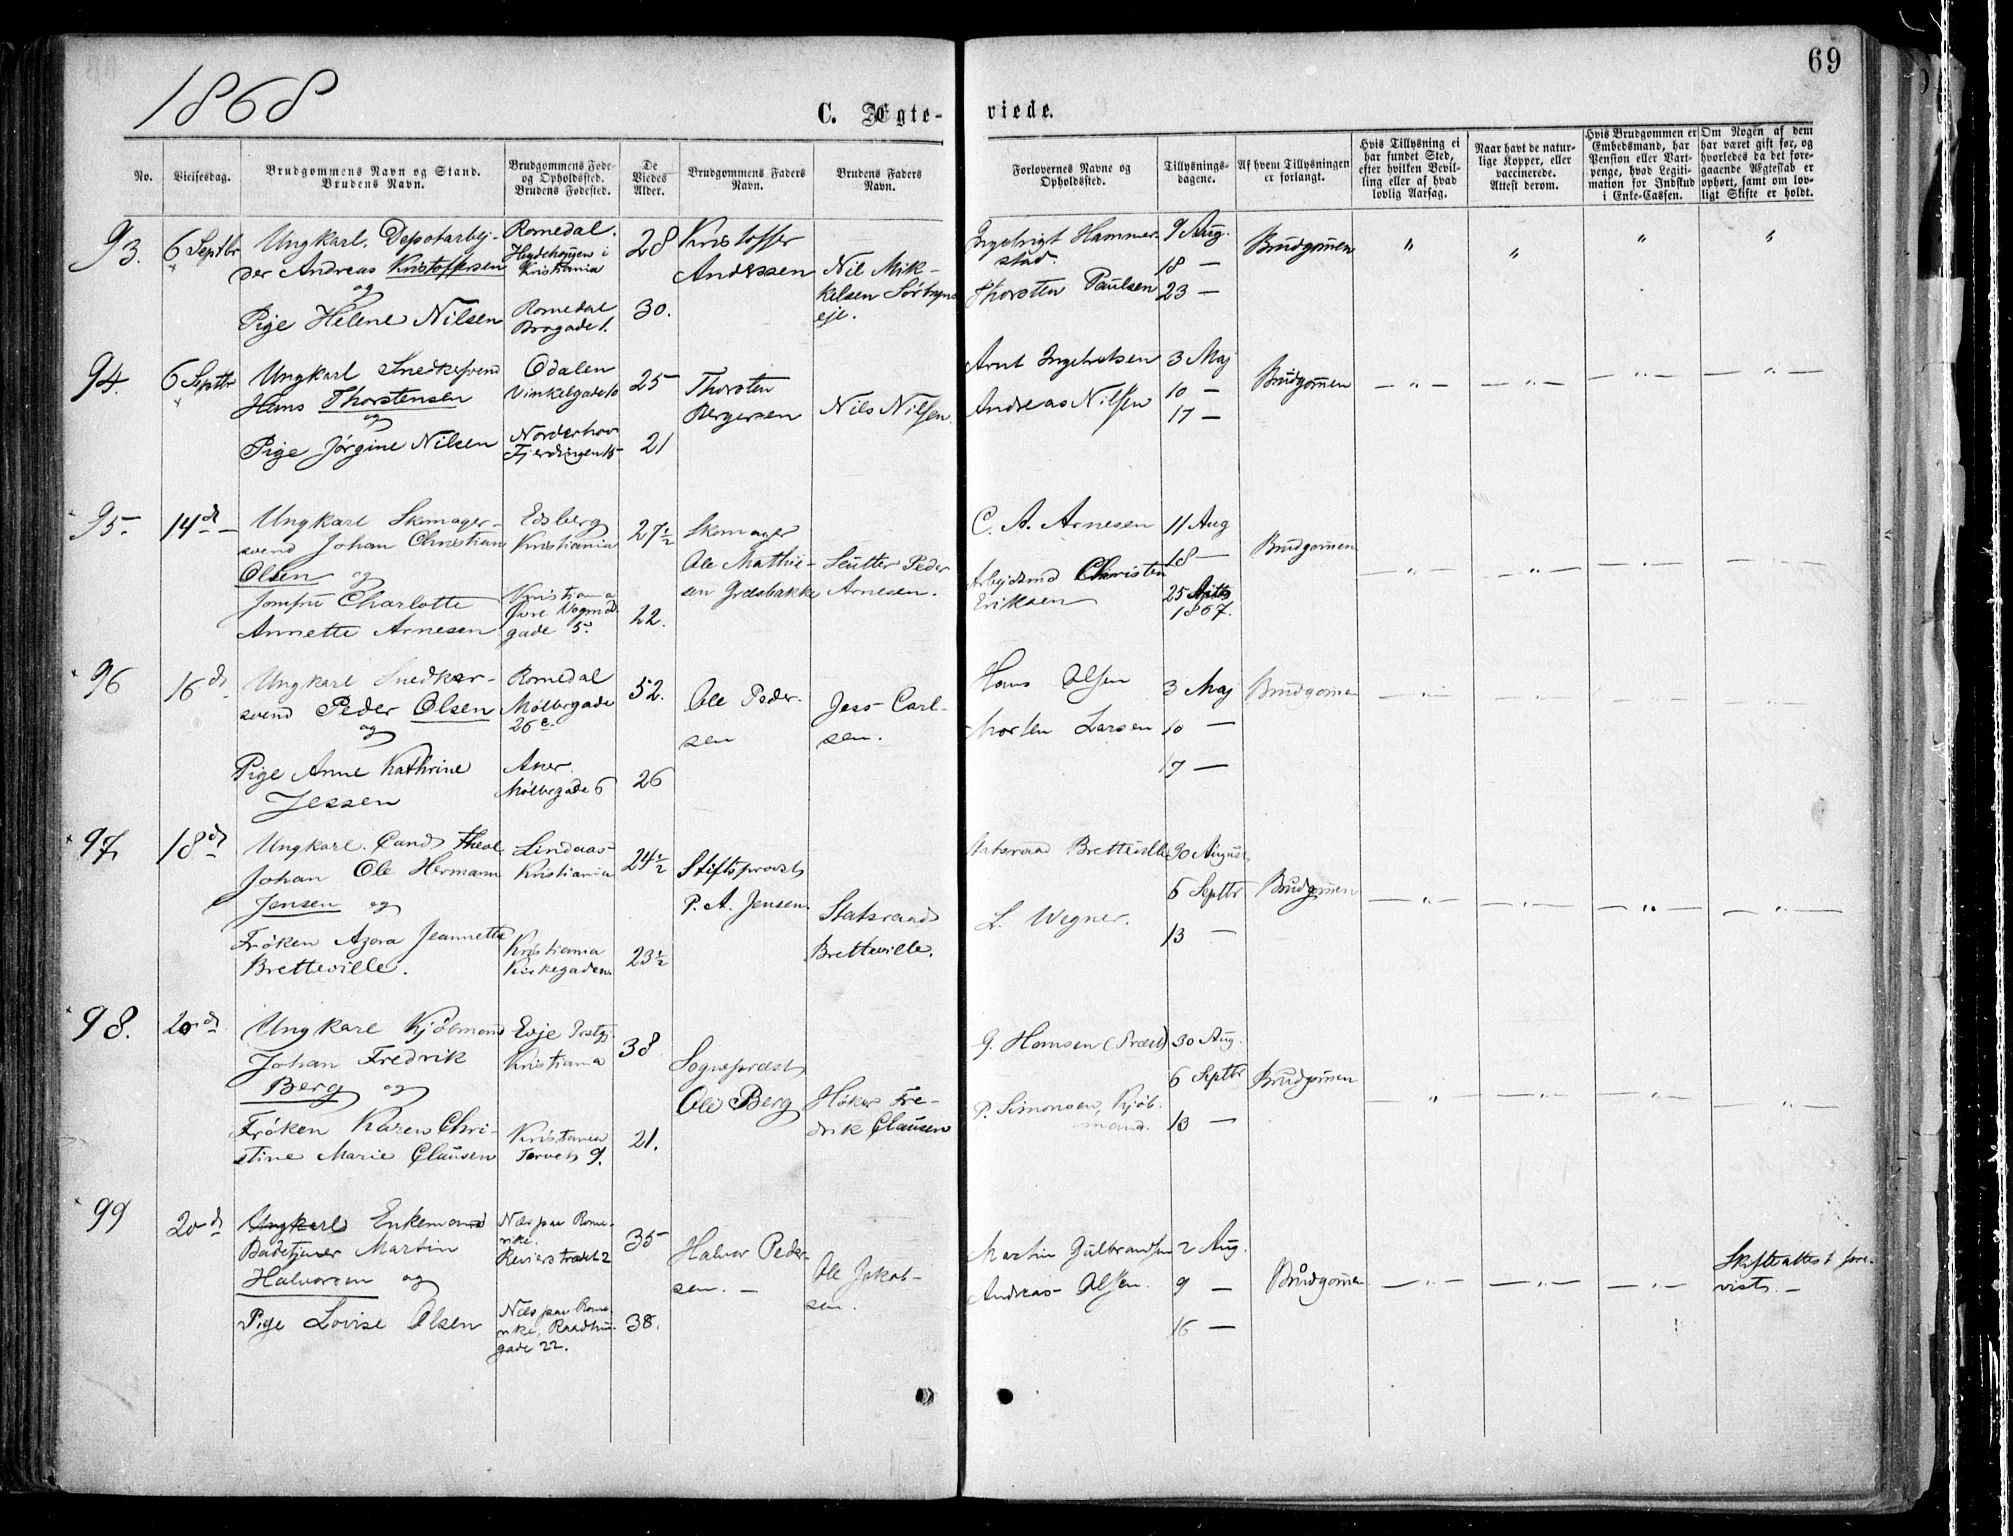 69
1868
C. Ægte- viede.
No.
Vielsesdag.
Brudgommens Navn og Stand.
Brudens Navn.
Brudgommens Føde-
og Opholdssted.
Brudens Fødested.
De
Viedes
Alder.
Brudgommens Faders
Navn.
Brudens Faders
Navn.
Forlovernes Navne og
Opholdssted.
Tillysnings-
dagene.
Af hvem Tillysningen
er forlangt.
Hvis Tillysning ei
har fundet Sted,
efter hvilken Bevil-
ling eller af hvad
lovlig Aarsag.
Naar havt de natur-
lige Kopper, eller
vaccinerede.
Attest derom.
Hvis Brudgommen er
Embedsmand, har
Pension eller Vart-
penge, hvad Legiti-
mation for Indskud
i Enke-Cassen.
Om Nogen af dem
har været gift før, og
hvorledes da det fore-
gaaende Ægteskab er
ophørt, samt om lov-
ligt Skifte er holdt.
93.
6 Septbr
Ungkarl. Depotarbej-
der Andreas Kristoffersen
og
Pige Helene Nilsen
Romedal.
Hegdehaugen i
Kristiania
Romedal
Brogade 1.
28
30.
Kristoffer
Anderssen
Nil Mik-
kelsen Sørbyens
eje.
Ingebrigt Hammer-
stad.
Thorsten Paulsen
9 Aug.
18 —
23 —
Brudgom̄en
" " " "
94.
6 Septbr
Ungkarl Snedkersvend
Hans Thorstensen
og
Pige Jørgine Nilsen
Odalen
Vinkelgade 10
Norderhov
Fjerdingen 15
25
21
Thorsten
Bergersen
Nils Nilsen.
Arnt Ingebretsen
Andreas Nilsen
3 Maj
10 —
17 —
Brudgom̄en
— " — — " — — " — — " —
95.
14 d —
Ungkarl Skomager-
svend Johan Christian
Olsen og
Jomfru Charlotte
Annette Arnesen
Edsberg
Kristiania
Kristiania
gade 5.
27½
22.
Skomager
Ole Mathie-
sen Græsbakke
Peder
Arnesen.
C. A. Arnesen
Arbejdsmd Christen
Eriksen
11 Aug
18 —
25
1867.
Brudgom̄en
— " — — " — — " — — " —
96
16 d
Ungkarl Snedker-
svend Peder Olsen
og
Pige Anne Kathrine
Jessen
Romedal
Møllergade
26 c.
Aker.
Møllergade 6
52.
26
Ole Peder-
sen
Jess Carl-
sen.
Hans Olsen
Morten Larsen
3 Maj
10 —
17 —
Brudgom̄en
— " — — " — — " — — " —
97
18 d
Ungkarl. Cand. Theol.
Johan Ole Hermann
Jensen og
Frøken Azora Jeannette
Bretteville.
Lindaas
Kristiania
Kristiania
Kirkegaden
24½
23½
Stiftsprovst
P. A. Jensen.
Statsraad
Bretteville.
Statsraad Bretteville
L. Wegner.
30 August
6 Septbr
13 —
Brudgom̄en
— " — — " — — " — — " —
98.
20 d.
Ungkarl Kjøbmand
Johan Fredrik
Berg og
Frøken Karen Chri-
stine Marie Clausen
Evje Prstgj.
Kristiania
Kristiania
Torvet 9.
38
21.
Sognepræst
Ole Berg
Høker Fre-
drik Clausen
G. Hansen (Præst)
P. Simonsen, Kjøb-
mand.
30 Aug.
6 Septbr
13 —
Brudgom̄en
— " — — " — — " — — " —
99
20 d
Ungkarl Enkemand
Badetjener Martin
Halvorsen og
Pige Lovise Olsen
Næs paa Rome-
rike.
Revierstrædet 2
Næs paa Rome-
rike, Raadhus-
gade 22.
35
38.
Halvor Peder-
sen. —
Ole Jakob-
sen.
Martin Gulbrandsen
Andreas Olsen.
2 Aug.
9 —
16 —
Brudgom̄en
— " — — " — — " —
Skifteattest fore-
vist. —